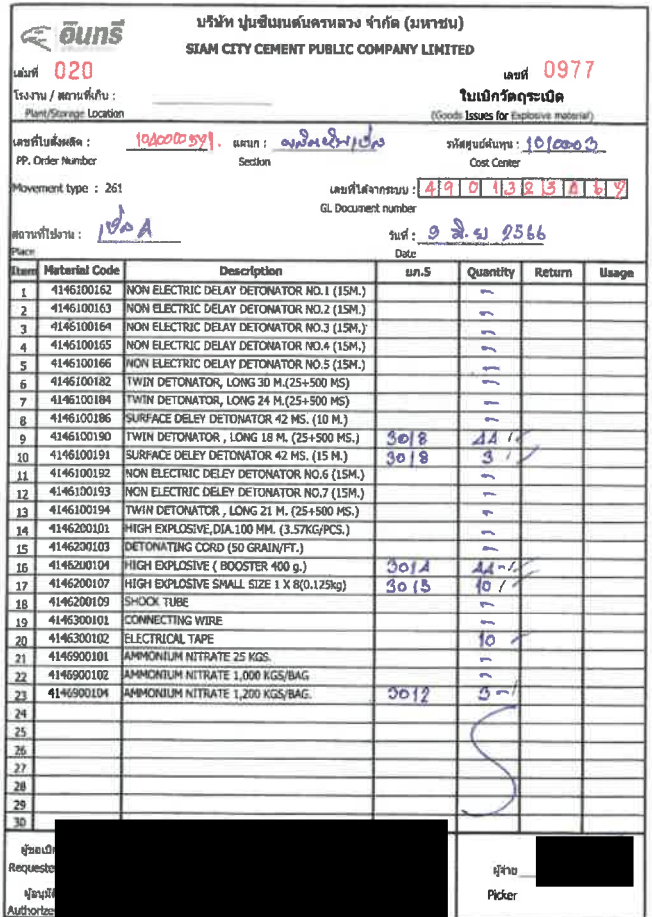 อินทรี
บริษัท ปูนซีเมนต์นครหลวง จำกัด (มหาชน)
SIAM CITY CEMENT PUBLIC COMPANY LIMITED
เล่มที่ 020 เลขที่ 0977
โรงงาน / สถานที่เก็บ : ใบเบิกวัตถุระเบิด
Plant/Storage Location (Goods Issues for Explosive material)
เลขที่ใบสั่งผลิต : แผนก : รหัสศูนย์ต้นทุน : 1010003
PP. Order Number Section Cost Center
Movement type : 261 เลขที่ได้จากระบบ :
GL Document number
สถานที่ใช้งาน : วันที่ : 9 มิ.ย 2566
Place Date
Item Material Code Description ยภ.5 Quantity Return Usage
1 4146100162 NON ELECTRIC DELAY DETONATOR NO.1 (15M.)
2 4146100163 NON ELECTRIC DELAY DETONATOR NO.2 (15M.)
3 4146100164 NON ELECTRIC DELAY DETONATOR NO.3 (15M.)
4 4146100165 NON ELECTRIC DELAY DETONATOR NO.4 (15M.)
5 4146100166 NON ELECTRIC DELAY DETONATOR NO.5 (15M.)
6 4146100182 TWIN DETONATOR, LONG 30 M.(25+500 MS)
7 4146100184 TWIN DETONATOR, LONG 24 M.(25+500 MS)
8 4146100186 SURFACE DELEY DETONATOR 42 MS. (10 M.)
9 4146100190 TWIN DETONATOR , LONG 18 M. (25+500 MS.) 3018 44
10 4146100191 SURFACE DELEY DETONATOR 42 MS. (15 M.) 3018 3
11 4146100192 NON ELECTRIC DELEY DETONATOR NO.6 (15M.)
12 4146100193 NON ELECTRIC DELEY DETONATOR NO.7 (15M.)
13 4146100194 TWIN DETONATOR , LONG 21 M. (25+500 MS.)
14 4146200101 HIGH EXPLOSIVE,DIA.100 MM. (3.57KG/PCS.)
15 4146200103 DETONATING CORD (50 GRAIN/FT.)
16 4146200104 HIGH EXPLOSIVE ( BOOSTER 400 g.) 3014 44
17 4146200107 HIGH EXPLOSIVE SMALL SIZE 1 X 8(0.125kg) 3013 10
18 4146200109 SHOCK TUBE
19 4146300101 CONNECTING WIRE
20 4146300102 ELECTRICAL TAPE 10
21 4146900101 AMMONIUM NITRATE 25 KGS.
22 4146900102 AMMONIUM NITRATE 1,000 KGS/BAG
23 4146900104 AMMONIUM NITRATE 1,200 KGS/BAG. 3012 3
24
25
26
27
28
29
30
ผู้ขอเบิก ผู้จ่าย
Requeste Picker
ผู้อนุมัติ
Authorize